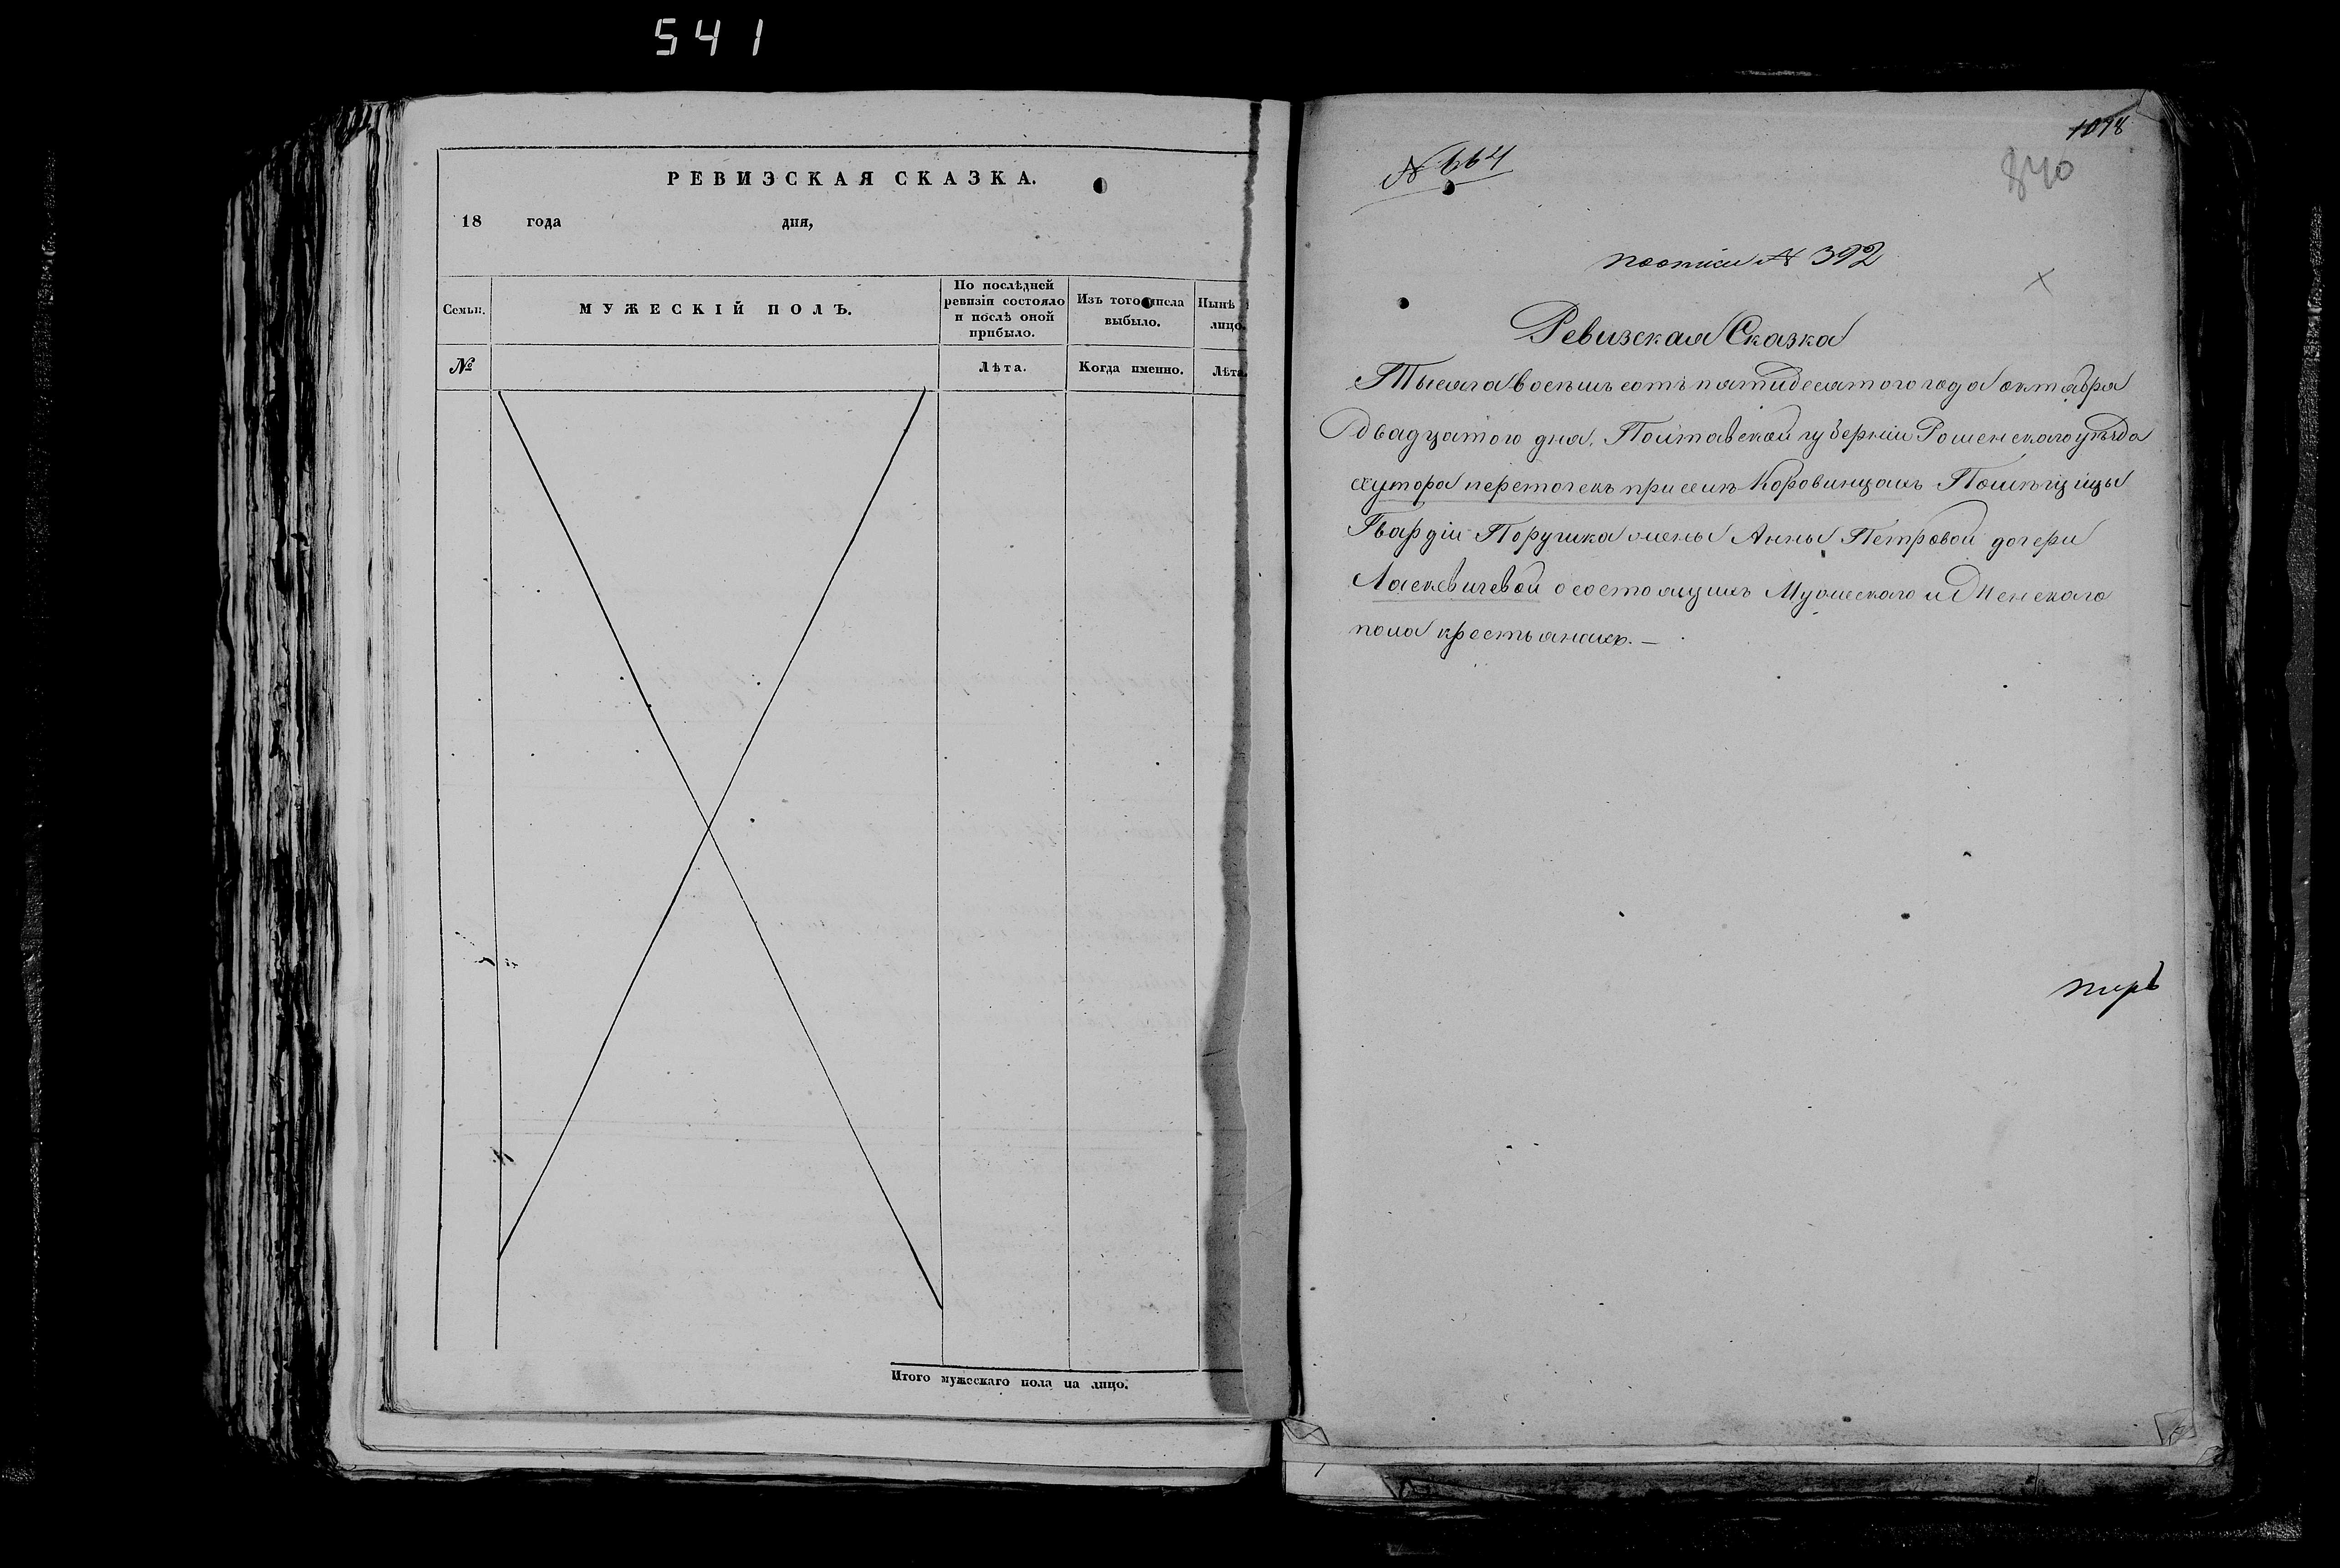 541
РЕВИЗСКАЯ СКАЗКА.
18 года дня,
Семьи.
МУЖЕСКІЙ ПОЛЪ.
По послѣдней
ревизіи состояло
и послѣ оной
прибыло.
Изъ того числа
выбыло.
Нынѣ
лицо
№
Лѣта.
Когда именно.
Лѣта
Итого мужескаго пола на лицо.
1098
840
№ 664
№ 392
Ревизская Сказка
Тысяча восемь сотъ пятидесятого года октября
двадцатого дня, Полтавской губерніи Роменского уѣзда
хутора переточекъ при селѣ Коровинцахъ Помѣщицы
Гвардіи Поручика жены Анны Петровой дочери
Ласкевичевой о состоящихъ Мужеского и Женского
пола крестьянахъ. —